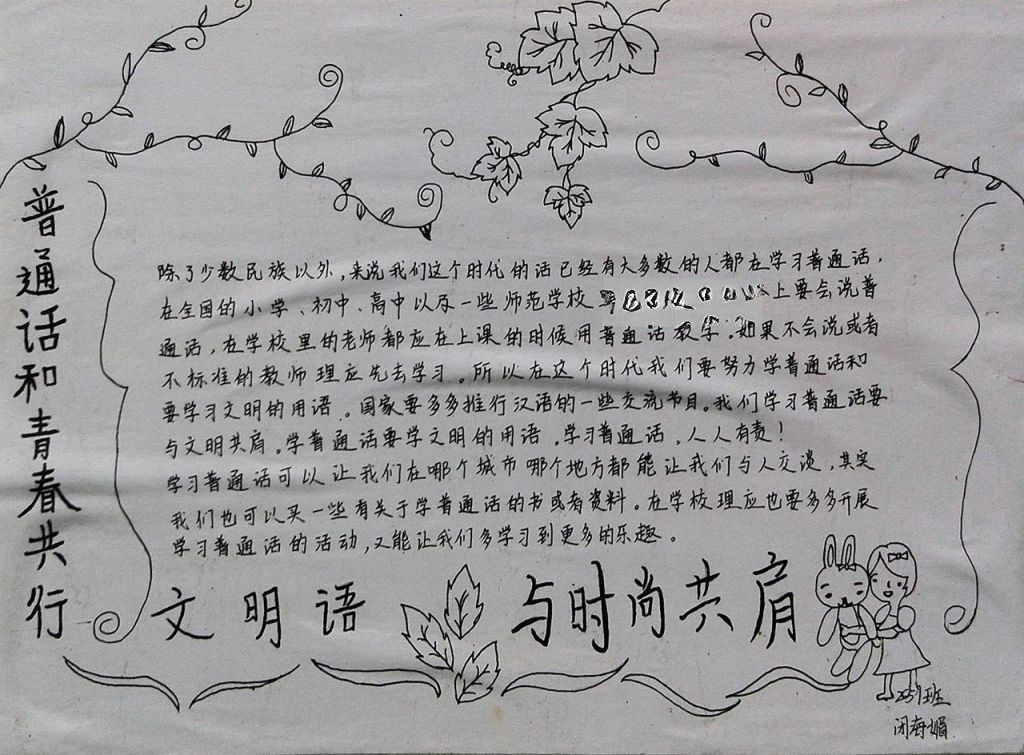 普通话和青春共行
除了少数民族以外,来说我们这个时代的话已经有大多数的人都在学习普通话,
在全国的小学、初中、高中以及一些师范学校 上要会说普
通话,在学校里的老师都应在上课的时候用普通话教学。如果不会说或者
不标准的教师理应先去学习。所以在这个时代我们要努力学普通话和
要学习文明的用语。国家要多多推行汉语的一些交流节目。我们学习普通话要
与文明共肩。学普通话要学文明的用语。学习普通话,人人有责!
学习普通话可以让我们在哪个城市哪个地方都能让我们与人交谈,其实
我们也可以买一些有关于学普通话的书或者资料。在学校理应也要多多开展
学习普通话的活动,又能让我们多学习到更多的乐趣。
文明语 与时尚共肩
班
闭海媚